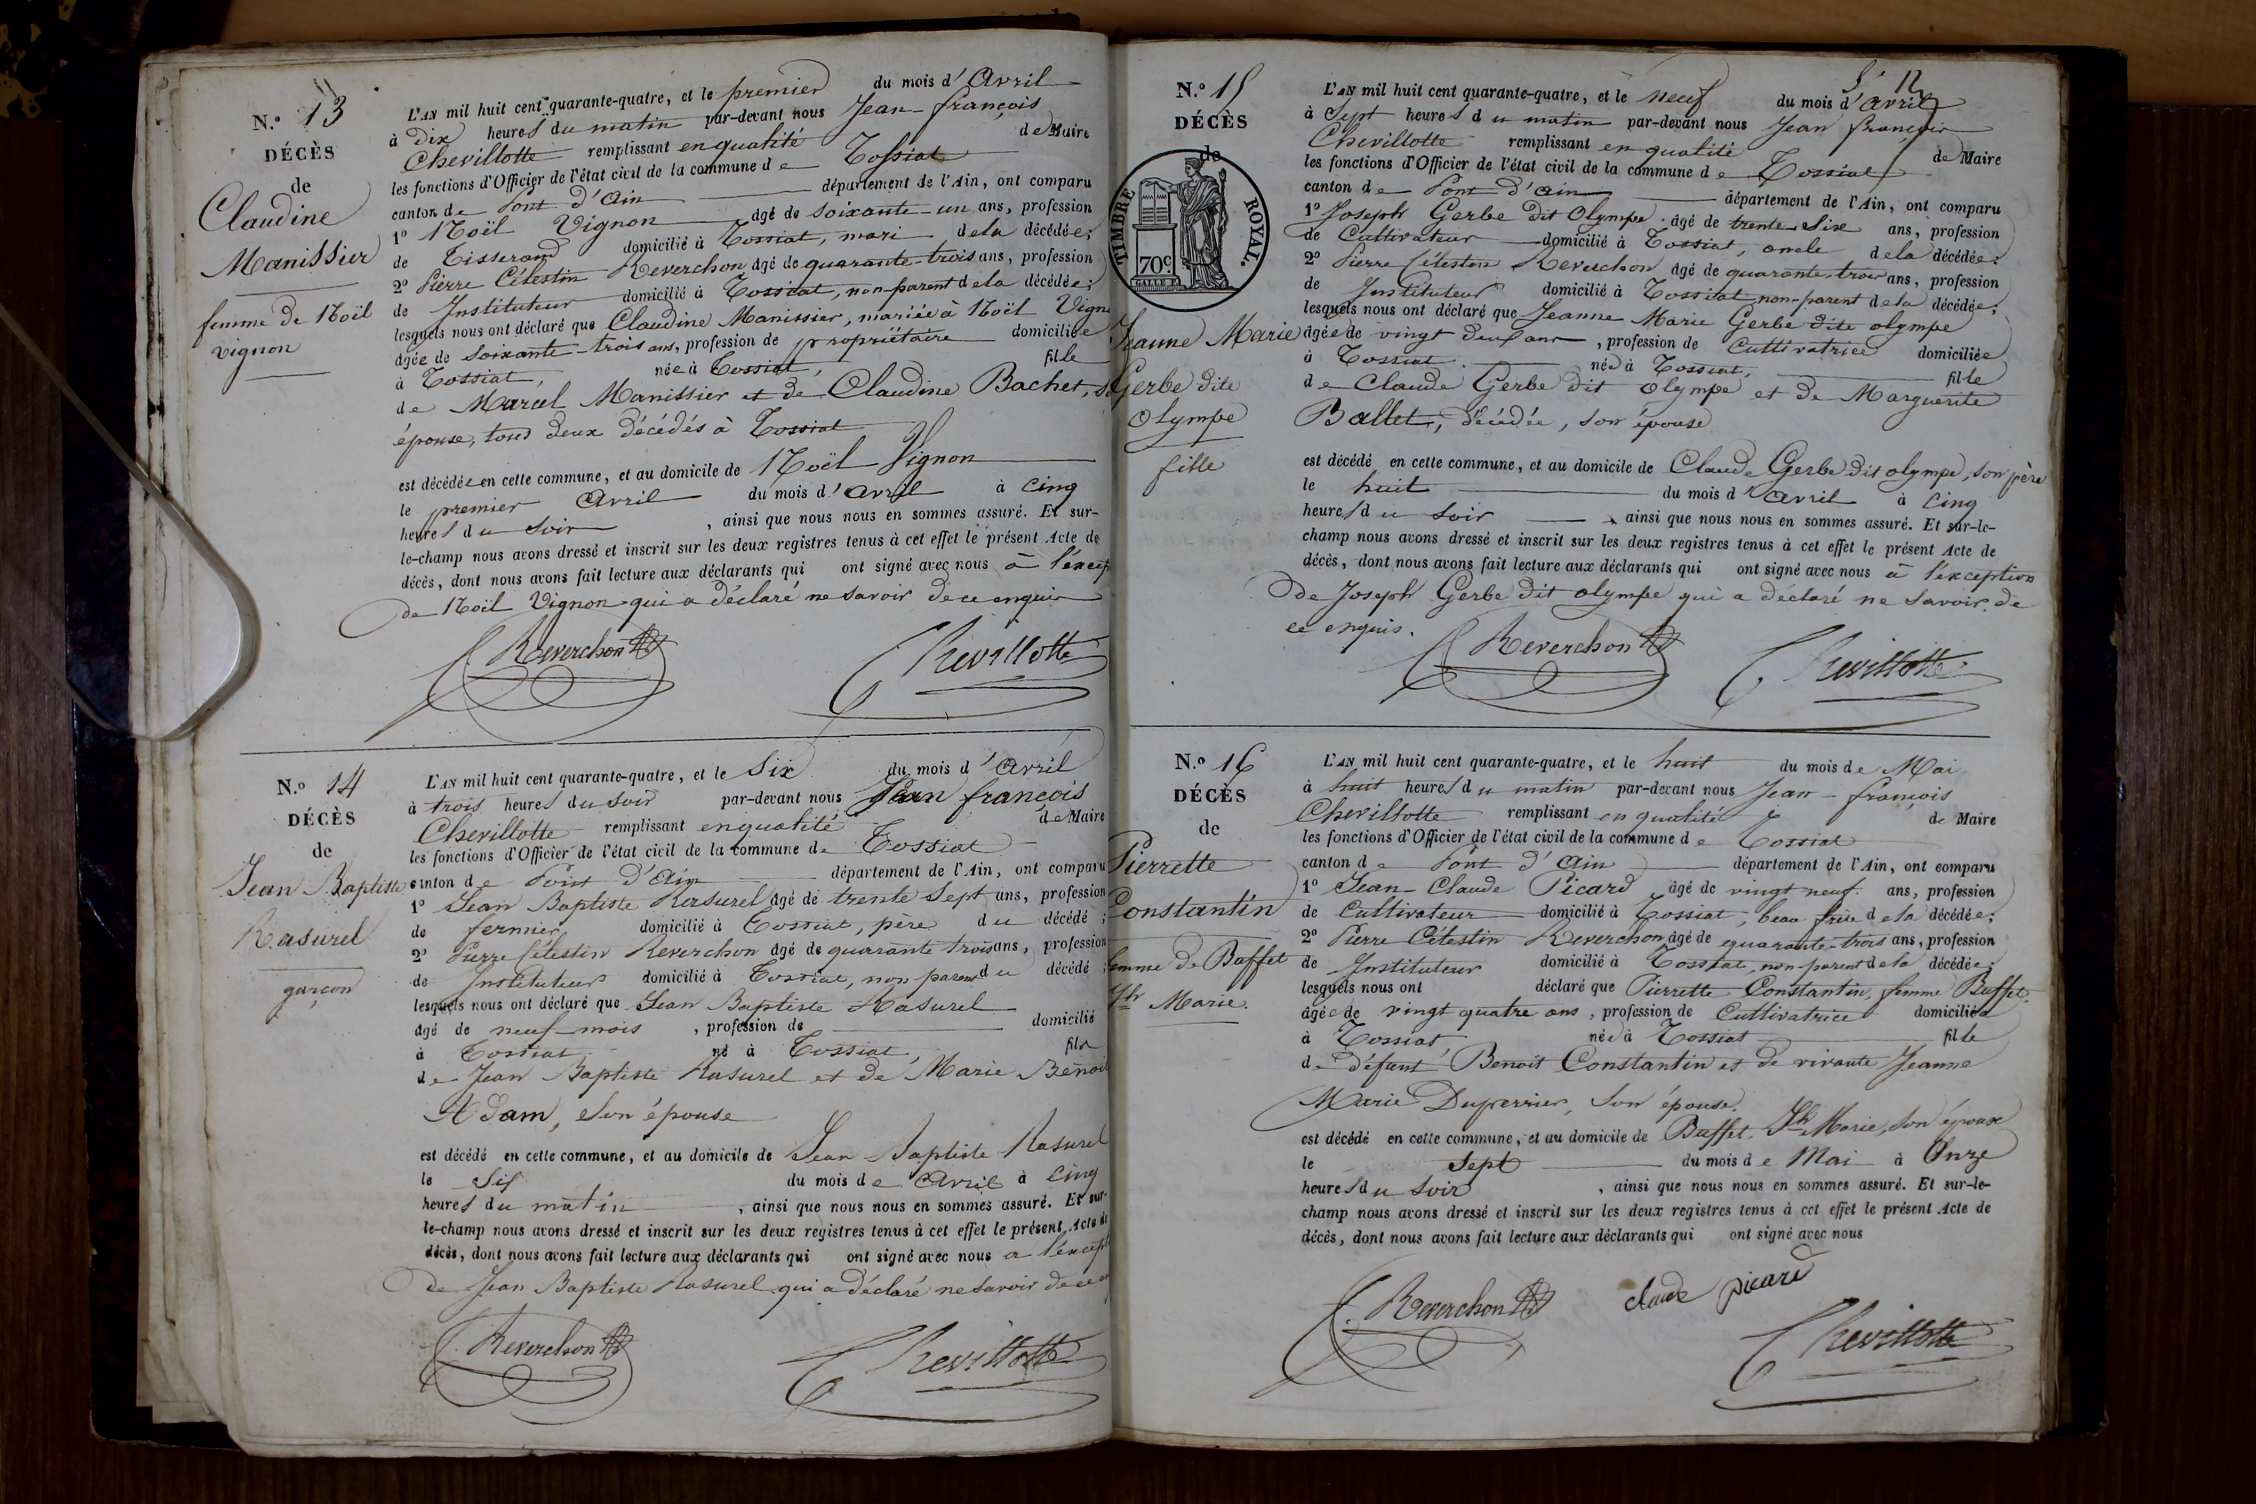 N.º 13
DÉCÈS
de
Claudine
Manissier
femme de Noël
vignon
L'AN mil huit cent quarante-quatre, et le premier du mois d'Avril
à dix heures du matin par-devant nous Jean-françois
Chevillotte remplissant en qualité de Maire
les fonctions d'Officier de l'état civil de la commune de Tossiat
canton de Pont d'Ain département de l'Ain, ont comparu
1º Noël Vignon âgé de soixante-un ans, profession
de Tisserand domicilié à Tossiat, mari de la décédée;
2º Pierre Célestin Reverchon âgé de quarante-trois ans, profession
de Instituteur domicilié à Tossiat, non-parent de la décédée;
lesquels nous ont déclaré que Claudine Manissier, mariée à Noël Vign
âgée de soixante-trois ans, profession de propriétaire domiciliée
à Tossiat, née à Tossiat, fille
de Marcel Manissier et de Claudine Bachet, s
épouse, tous deux décédés à Tossiat
est décédée en cette commune, et au domicile de Noël Vignon
le premier Avril du mois d'Avril à cinq
heures du soir, ainsi que nous nous en sommes assuré. Et sur-
le-champ nous avons dressé et inscrit sur les deux registres tenus à cet effet le présent Acte de
décès, dont nous avons fait lecture aux déclarants qui ont signé avec nous à l'excep
de Noël Vignon qui a déclaré ne savoir de ce enquis
Reverchon Chevillotte
N.º 14
DÉCÈS
de
Jean Baptiste
Rasurel
garçon
L'AN mil huit cent quarante-quatre, et le six du mois d'Avril
à trois heures du soir par-devant nous Jean françois
Chevillotte remplissant en qualité de Maire
les fonctions d'Officier de l'état civil de la commune de Tossiat
canton de Pont d'Ain département de l'Ain, ont comparu
1º Jean Baptiste Rasurel âgé de trente sept ans, profession
de fermier domicilié à Tossiat, père du décédé;
2º Pierre Célestin Reverchon âgé de quarante trois ans, profession
de Instituteur domicilié à Tossiat, non parent du décédé;
lesquels nous ont déclaré que Jean Baptiste Rasurel
âgé de neuf mois, profession de domicilié
à Tossiat né à Tossiat fils
de Jean Baptiste Rasurel et de Marie Benoit
Adam, son épouse
est décédé en cette commune, et au domicile de Jean Baptiste Rasurel
le Six du mois de Avril à cinq
heures du matin, ainsi que nous nous en sommes assuré. Et sur-
le-champ nous avons dressé et inscrit sur les deux registres tenus à cet effet le présent Acte de
décès, dont nous avons fait lecture aux déclarants qui ont signé avec nous a l'except
de Jean Baptiste Rasurel qui a déclaré ne savoir de ce
Reverchon Chevillotte
12
N.º 15
DÉCÈS
de
TIMBRE ROYAL.
70c
Jeanne Marie
Gerbe dite
Olympe
fille
L'AN mil huit cent quarante-quatre, et le neuf du mois d'avril
à Sept heures du matin par-devant nous Jean françois
Chevillotte remplissant en qualité de Maire
les fonctions d'Officier de l'état civil de la commune de Tossiat
canton de Pont d'Ain département de l'Ain, ont comparu
1º Joseph Gerbe dit Olympe âgé de trente Six ans, profession
de Cultivateur domicilié à Tossiat, oncle de la décédée;
2º Pierre Célestin Reverchon âgé de quarante-trois ans, profession
de Instituteur domicilié à Tossiat non-parent de la décédée;
lesquels nous ont déclaré que Jeanne Marie Gerbe dite olympe
âgée de vingt deux ans, profession de Cultivatrice domiciliée
à Tossiat née à Tossiat, fille
de Claude Gerbe dit Olympe et de Marguerite
Ballet, décédée, son épouse
est décédé en cette commune, et au domicile de Claude Gerbe dit olympe, son père
le huit du mois d'Avril à Cinq
heures du soir, ainsi que nous nous en sommes assuré. Et sur-le-
champ nous avons dressé et inscrit sur les deux registres tenus à cet effet le présent Acte de
décès, dont nous avons fait lecture aux déclarants qui ont signé avec nous à l'exception
de Joseph Gerbe dit olympe qui a déclaré ne savoir de
ce enquis.
Reverchon Chevillotte
N.º 16
DÉCÈS
de
Pierrette
Constantin
femme de Buffet
Jh Marie
L'AN mil huit cent quarante-quatre, et le huit du mois de Mai
à huit heures du matin par-devant nous Jean-françois
Chevillotte remplissant en qualité de Maire
les fonctions d'Officier de l'état civil de la commune de Tossiat
canton de Pont d'Ain département de l'Ain, ont comparu
1º Jean-Claude Picard âgé de vingt neuf ans, profession
de Cultivateur domicilié à Tossiat, beau frère de la décédée;
2º Pierre Célestin Reverchon âgé de quarante-trois ans, profession
de Instituteur domicilié à Tossiat, non parent de la décédée;
lesquels nous ont déclaré que Pierrette Constantin, femme Buffet
âgée de vingt quatre ans, profession de Cultivatrice domiciliée
à Tossiat, née à Tossiat fille
de défunt Benoit Constantin et de vivante Jeanne
Marie Duperrier, son épouse.
est décédé en cette commune, et au domicile de Buffet Jh Marie, son époux
le Sept du mois de Mai à Onze
heures du soir, ainsi que nous nous en sommes assuré. Et sur-le-
champ nous avons dressé et inscrit sur les deux registres tenus à cet effet le présent Acte de
décès, dont nous avons fait lecture aux déclarants qui ont signé avec nous
Reverchon claude picard
Chevillotte